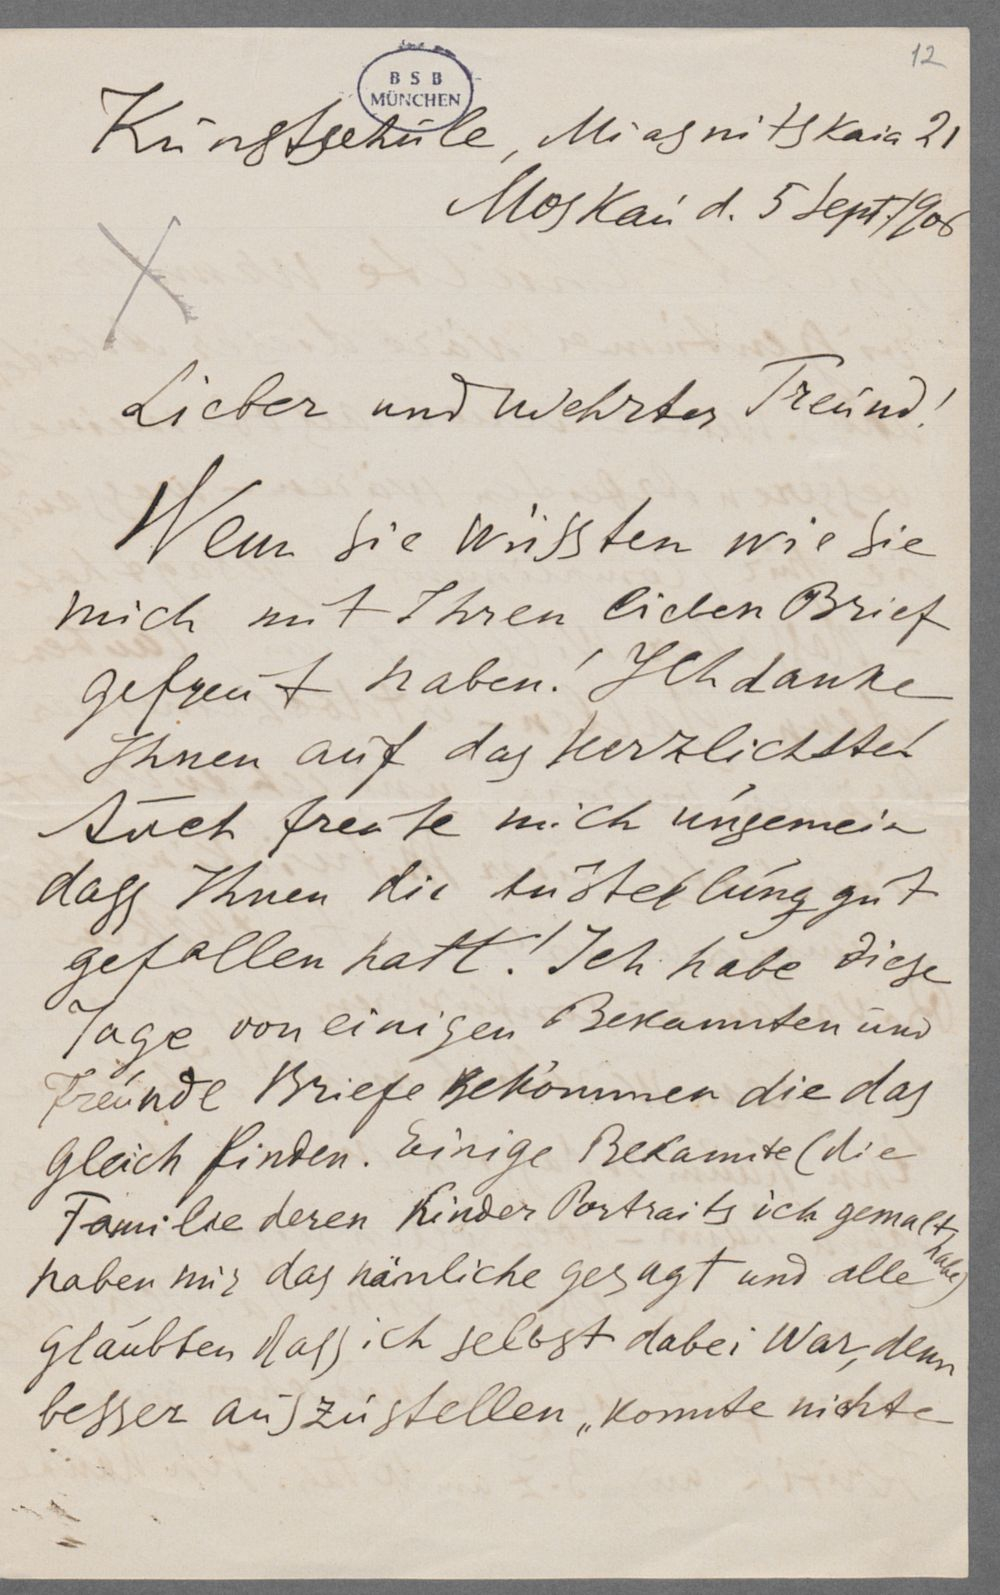 12
BSB
MÜNCHEN
Künstschúle, Miasnitskaia 21
Moskaú d. 5 Sept. 1906
Lieber und Wehrter Freúnd!
Wenn sie wüssten wie sie
mich mit Ihren lieben Brief
gefreut haben! Ich danke
Ihnen aúf das herzlichste!
Aúch freute mich úngemein
dass Ihnen die Aústellúng gút
gefallen hatt! Ich habe diese
Tage von einigen Bekannten und
Freúnde Briefe bekommen die das
gleich finden. Einige Bekannte (die
Familie deren Kinder Portraits ich gemalt
habe)
haben mir das nämliche gesagt und alle
glaúbten dass ich selbst dabei war, denn
besser aúszústellen „konnte nichte